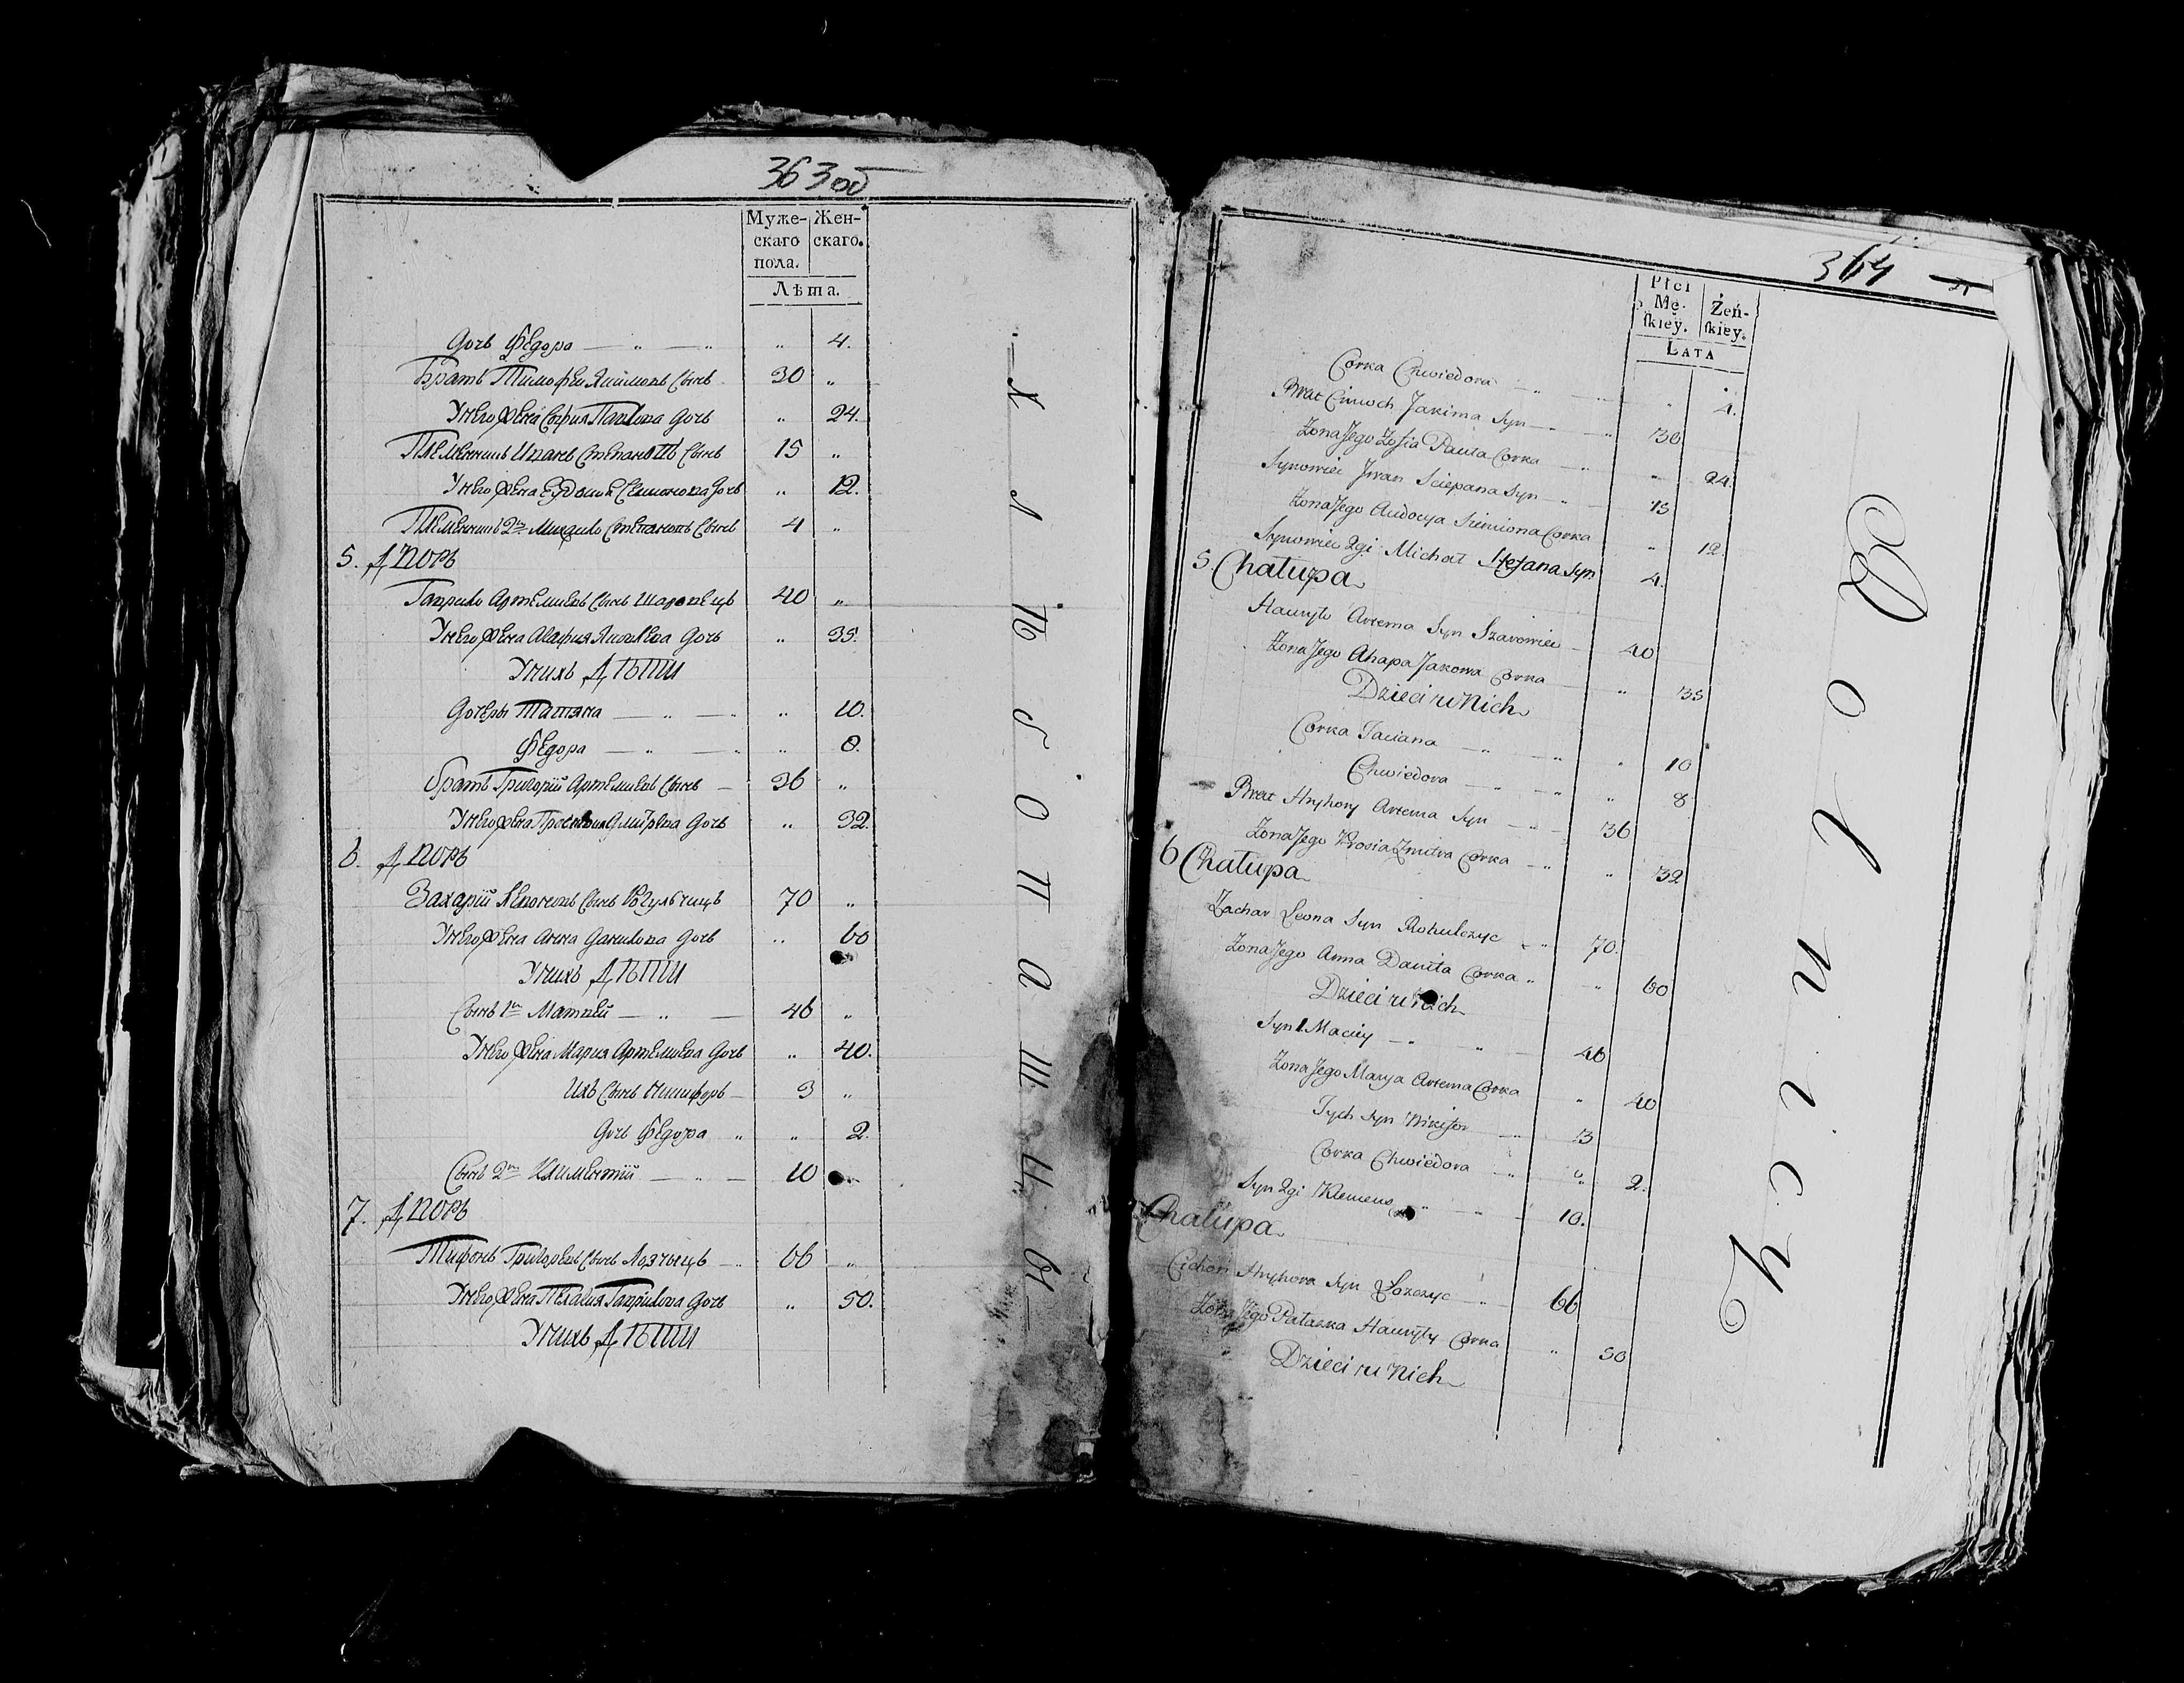 363 об
Муже-
скаго
пола.
Жен-
скаго.
Лѣта.
Дочь Ѳедора — „ — „ „ 4.
Братъ Тимофей Якимовъ Сынъ 30 „
У него жена София Павлова Дочь „ 24.
Племянникъ Иванъ Степановъ Сынъ 15 „
У него жена Евдокия Семионова Дочь „ 12.
Племянникъ 2й Михайло Степановъ Сынъ 4 „
5. Дворъ
Гаврило Артемиевъ Сынъ Шаровецъ 40 „
У него жена Агафия Яковлева Дочь „ 35.
У нихъ Дѣти
Дочеры Татяна — „ — „ „ 10.
Ѳедора — „ — „ „ 8.
братъ Григорій Артемиевъ Сынъ — 36 „
У него жена Дмитрева Дочь „ 32.
6. Дворъ
Захарій Леоновъ Сынъ Рогульчицъ 70 „
У него жена Анна Данилова Дочь „ 60
У нихъ Дѣти
Сынъ 1й Матвей — „ — 46 „
У него жена Мария Артемиева Дочь „ 40.
Ихъ Сынъ Никифоръ — 3 „
Дочь Ѳедора „ „ 2.
Сынъ 2й Климентій — „ — 10
7. Дворъ
Тифонъ Григорьевъ Сынъ Лозчицъ — 66 „
У него жена Пелагия Гаврилова Дочь „ 50.
У нихъ Дѣти
Хлѣбопашцы
364
Płci
Mę-
ſkiey.
Żeń-
ſkiey.
LATA
Corka Chwiedora — „ — „ 4.
Brat Cimoch Jakima Syn — „ 30
Zona Jego Zofia Pauła Corka — „ 24.
Synowiec Jwan Sciepana Syn — „ 15
Zona Jego Audocya Siemiona Corka „ 12.
Synowiec 2gi Michał Stefana Syn 4.
5. Chałupa
Hauryło Artema Syn Szarowiec — 40
Zona Jego Ahapa Jakowa Corka — „ 35
Dzieci u Nich
Corka Taciana — „ — „ „ 10
Chwiedora — „ — „ „ 8
Brat Hryhory Artema Syn — „ — 36
Zona Jego Prosia Zmitra Corka — „ „ 32
6 Chałupa
Zachar Leona Syn Rohulczyc — „ 70.
Zona Jego Anna Daniła Corka „ „ 60
Dzieci u Nich
Syn 1 Maciey — „ „ — 46
Zona Jego Marya Artema Corka „ 40
Jych Syn Nikifor — „ 3
Corka Chwiedora — „ „ 2.
Syn 2gi Klemens „ — 10.
Chałupa
Cichon Hryhora Syn Łozczyc — „ 66
Zona Jego Pałaska Hauryły Corka „ 50
Dzieci u Nich
Rolnicy